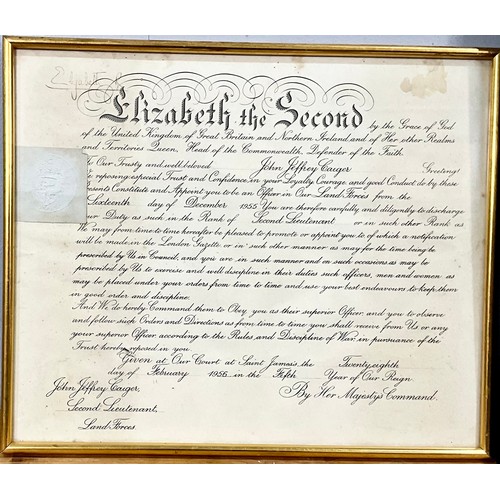 Elizabeth R
Elizabeth the Second
by the Grace of God
of the United Kingdom of Great Britain and Northern Ireland and of Her other Realms
and Territories Queen, Head of the Commonwealth, Defender of the Faith.
To Our Trusty and well beloved John Jeffrey Caiger Greeting!
reposing especial Trust and Confidence in your Loyalty, Courage, and good Conduct do by these
Presents Constitute and Appoint you to be an Officer in Our Land Forces from the
Sixteenth day of December 1955 You are therefore carefully and diligently to discharge
your Duty as such in the Rank of Second Lieutenant or in such other Rank as
We may from time to time hereafter be pleased to promote or appoint you to of which a notification
will be made in the London Gazette or in such other manner as may for the time being be
prescribed by Us in Council, and you are in such manner and on such occasions as may be
prescribed by Us to exercise and well discipline in their duties such officers, men and women as
may be placed under your orders from time to time and use your best endeavours to keep them
in good order and discipline.
And We do hereby Command them to Obey you as their superior Officer and you to observe
and follow such Orders and Directions as from time to time you shall receive from Us or any
your superior Officer according to the Rules and Discipline of War, in pursuance of the
Trust hereby reposed in you.
Given at Our Court at Saint James's the Twenty eighth
day of February 1956 in the Fifth Year of Our Reign
John Jeffrey Caiger, By Her Majesty's Command.
Second Lieutenant,
Land Forces.